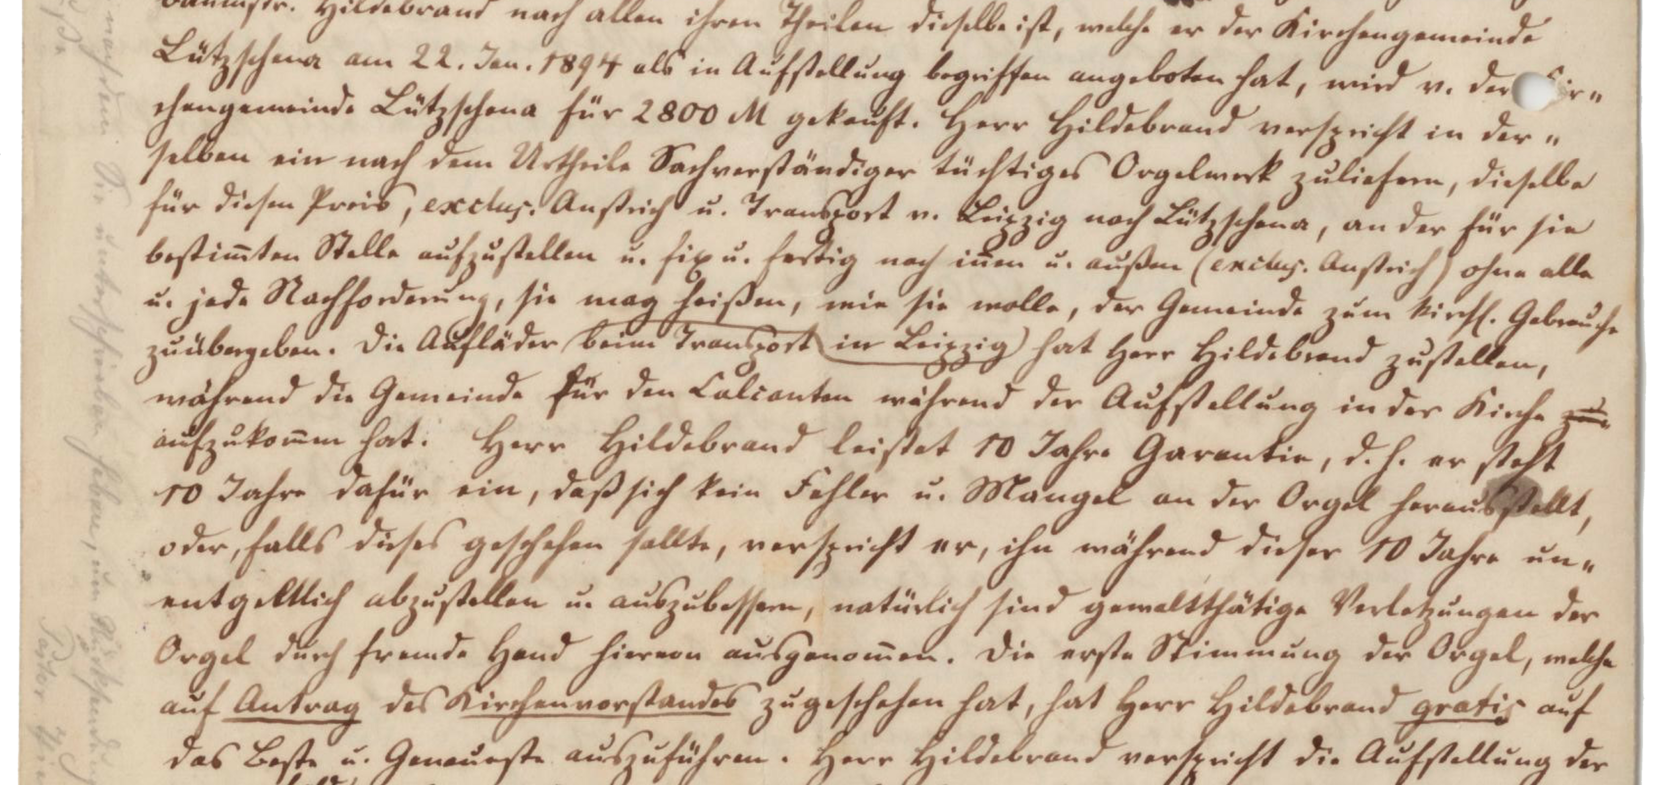 baumstr. Hildebrand nach allen ihren Theilen dieselbe ist, welche er der Kirchengemeinde
Lützschena am 22. Jan. 1894 als in Aufstellung begriffen angeboten hat, wird v. der Kir=
chengemeinde Lützschena für 2800 M gekauft. Herr Hildebrand verspricht in der=
selben ein nach dem Urtheile Sachverständiger tüchtiges Orgelwerk zuliefern, dieselbe
für diesen Preis, exclus. Anstrich u. Transport v. Leipzig nach Lützschena, an der für sie
bestim̅ten Stelle aufzustellen u. fix u. fertig nach in̅en u. außen (exclus. Anstrich) ohne alle
u. jede Nachforderung, sie mag heißen, wie sie wolle, der Gemeinde zum kirchl. Gebrauche
zuübergeben. Die Aufläder (beim Transport in Leipzig) hat Herr Hildebrand zustellen,
während die Gemeinde für den Calcanten während der Aufstellung in der Kirche zu
aufzukom̅en hat. Herr Hildebrand leistet 10 Jahre Garantie, d. h. er steht
10 Jahre dafür ein, daß sich kein Fehler u. Mangel an der Orgel herausstellt,
oder, falls dieses geschehen sollte, verspricht er, ihn während dieser 10 Jahre un=
entgeltlich abzustellen u. auszubessern, natürlich sind gewaltthätige Verletzungen der
Orgel durch fremde Hand hiervon ausgenom̅en. Die erste Stimmung der Orgel, welche
auf Antrag des Kirchenvorstandes zugeschehen hat, hat Herr Hildebrand gratis auf
das Beste u. Genaueste auszuführen. Herr Hildebrand verspricht die Aufstellung der